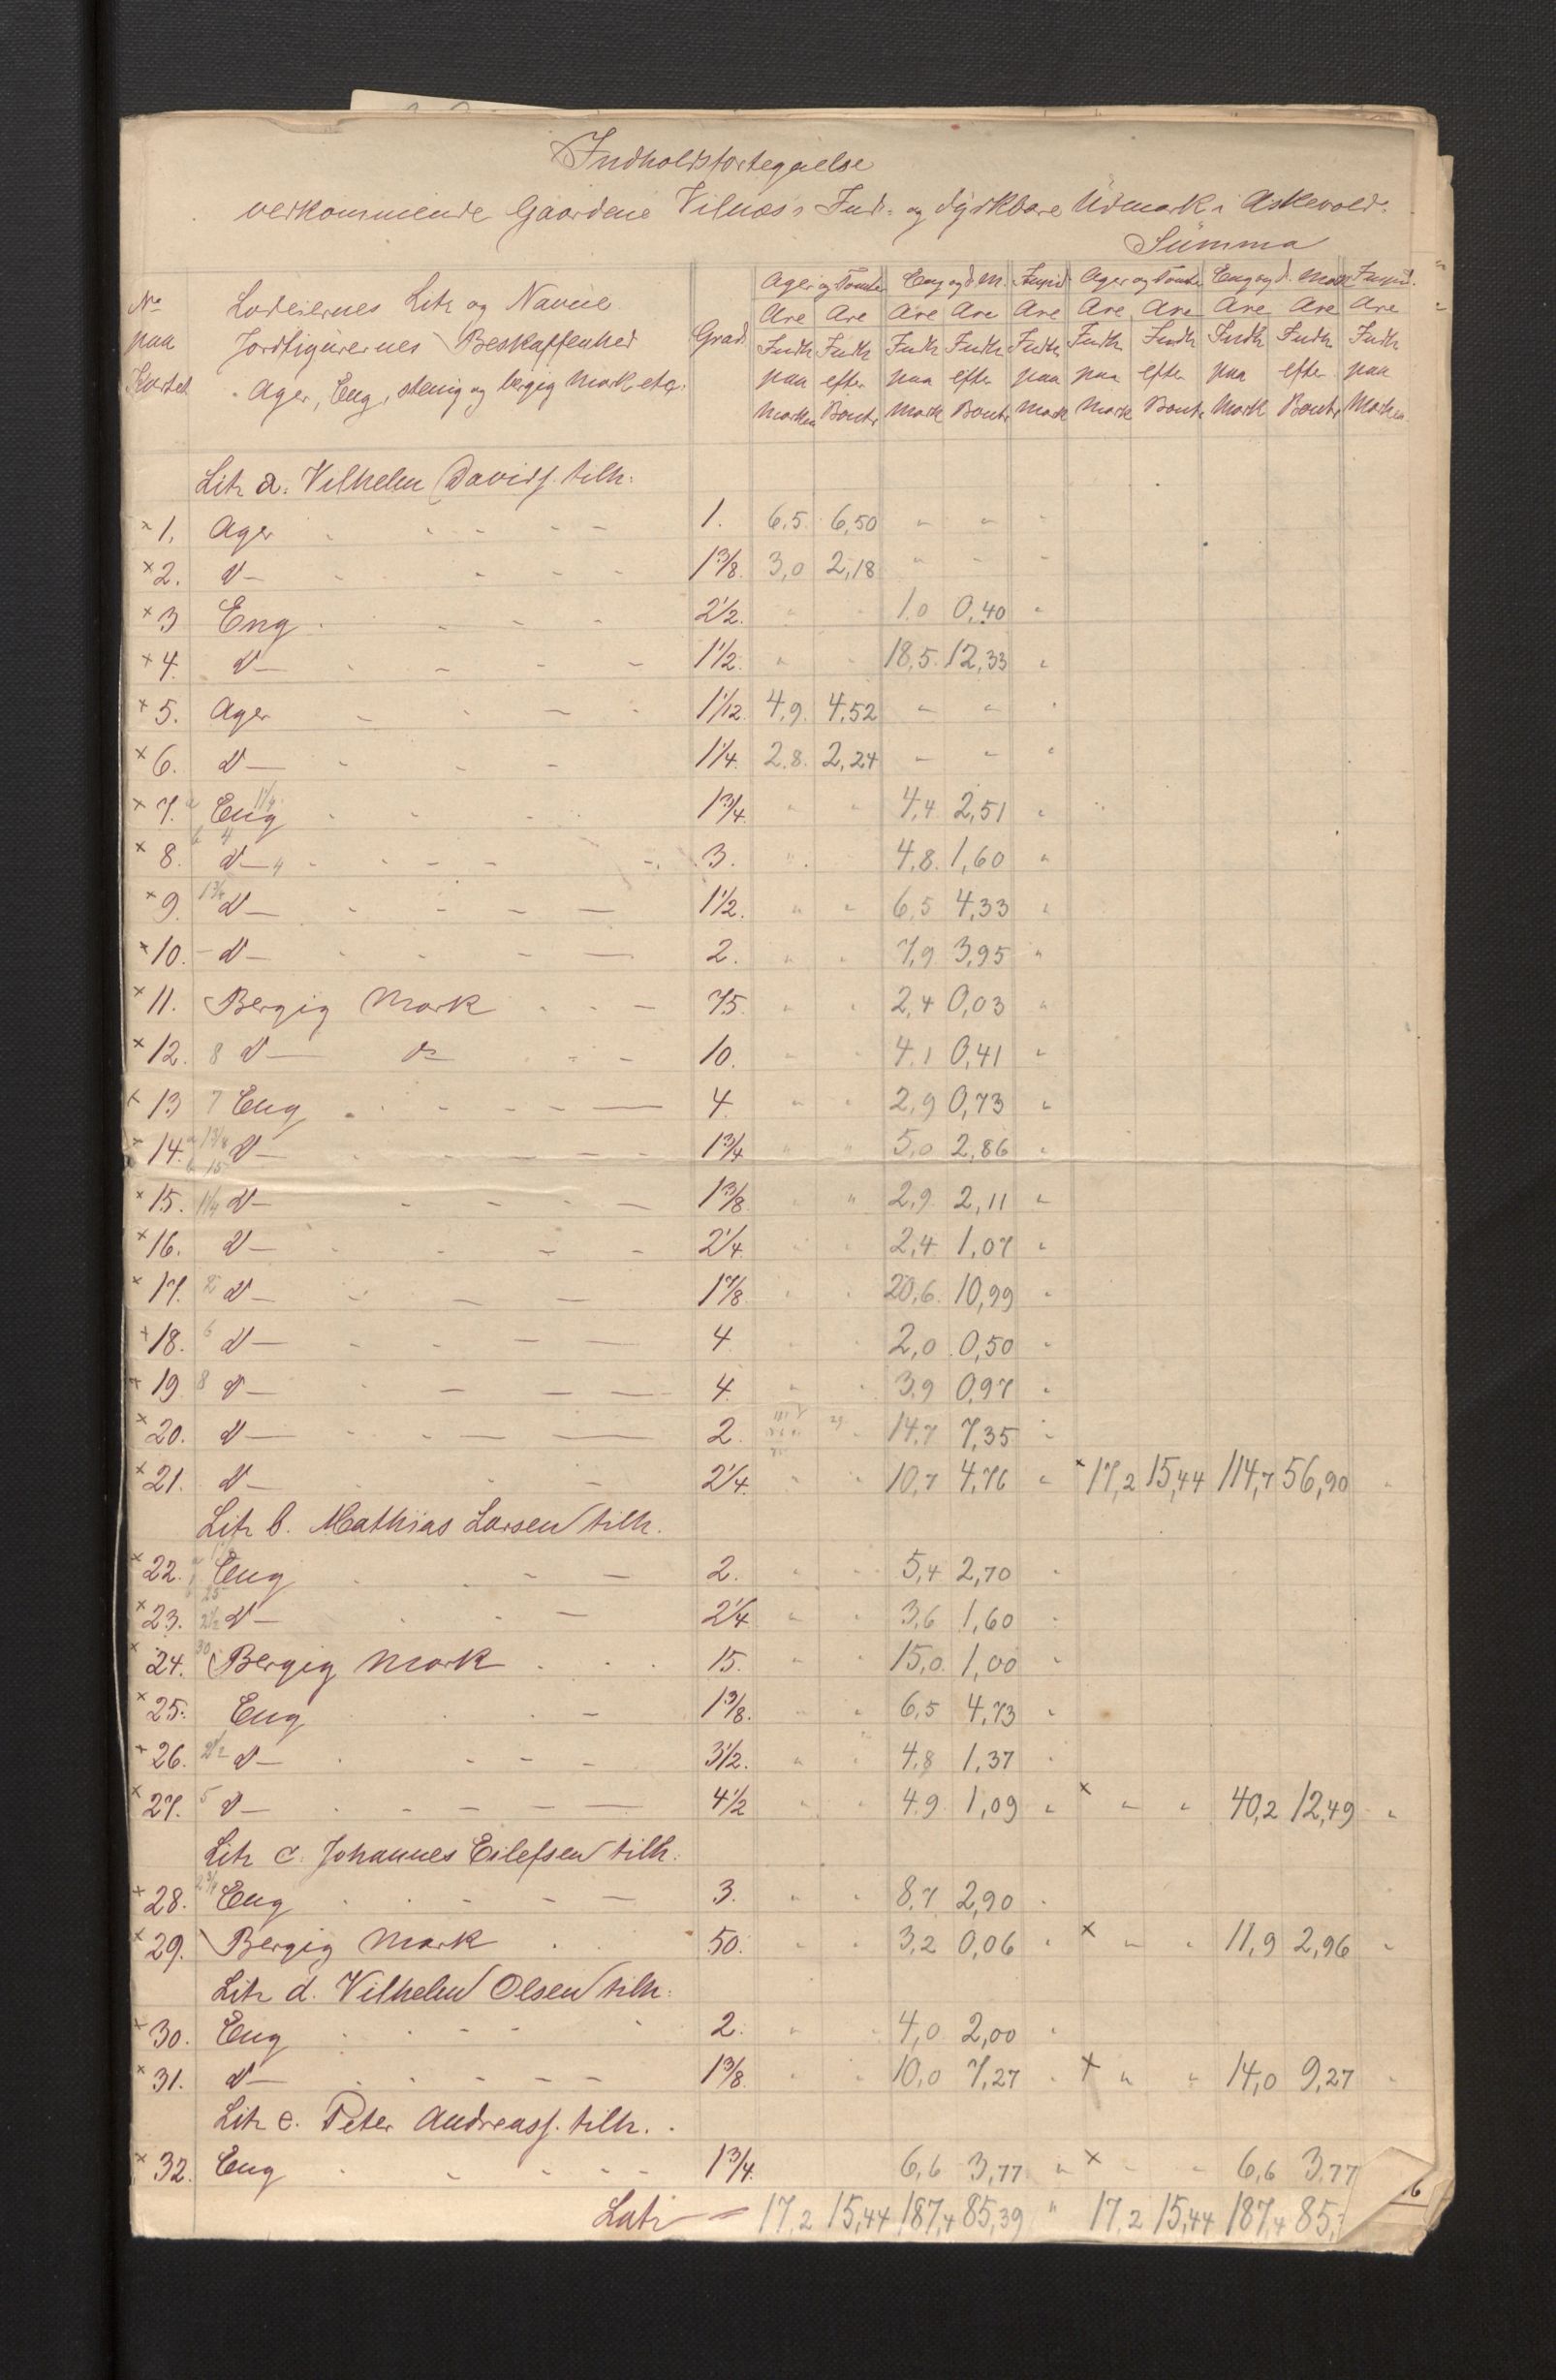 Indholdsfortegnelse
vedkommende Gaardene Vilnæs's Ind- og dyrkbare Udmark i Askevold.
Summa
No paa Kartet
Lodeiernes Litr og Navne
Jordfigurernes Beskaffenhed
Ager, Eng, stenig og bergig Mark etc.
Grad
Ager og Tomter Eng og d. M. Impid. Ager og Tomter Eng og d. Mark Impid.
Are Are Are Are Are Are Are Are Are Are
Indh Indh Indh Indh Indh Indh Indh Indh Indh Indh
paa efter paa efter paa paa efter paa efter paa
Marken Bont. Mark Bont. Mark Mark Bont. Mark Bont. Marken
Litr a. Vilhelm Davids. tilh.
× 1. Ager 1. 6,5 6,50 " " "
× 2. d— 1 3/8. 3,0 2,18 " " "
× 3 Eng 2 1/2. " " 1,0 0,40 "
× 4. d— 1 1/2. " " 18,5 12,33 "
× 5. Ager 1 1/12. 4,9 4,52 " " "
× 6. d— 1 1/4. 2,8 2,24 " " "
× 7. Eng 1 3/4. " " 4,4 2,51 "
× 8. d— 3. " " 4,8 1,60 "
× 9. 1 3/4 d— 1 1/2. " " 6,5 4,33 "
× 10. d— 2. " " 7,9 3,95 "
× 11. Bergig Mark 75. " " 2,4 0,03 "
× 12. 8 d— do 10. " " 4,1 0,41 "
× 13 7 Eng 4. " " 2,9 0,73 "
× 14. 1 3/4 d— 1 3/4 " " 5,0 2,86 "
× 15. 1 1/4 d— 1 3/8 " " 2,9 2,11 "
× 16. d— 2 1/4. " " 2,4 1,07 "
× 17. 2 d— 1 7/8. " " 20,6 10,99 "
× 18. 6 d— 4 " " 2,0 0,50 "
× 19 8 d— 4. " " 3,9 0,97 "
× 20. d— 2. 14,7 7,35 "
× 21. d— 2 1/4. " " 10,7 4,76 " × 17,2 15,44 114,7 56,90 "
Litr b. Mathias Larsen tilh.
× 22. Eng 2. " " 5,4 2,70 "
× 23. 2 1/2 d— 2 1/4 " " 3,6 1,60 "
× 24. 30 Bergig Mark 15. " " 15,0 1,00 "
× 25. Eng 1 3/8. " " 6,5 4,73 "
× 26. 2 1/2 d— 3 1/2. " " 4,8 1,37 "
× 27. 5 d— 4 1/2 " " 4,9 1,09 " × " " 40,2 12,49 "
Litr c. Johannes Eilefsen tilh.
× 28. 2 3/4 Eng 3. " " 8,7 2,90 "
× 29. Bergig Mark 50. " " 3,2 0,06 " × " " 11,9 2,96 "
Litr d. Vilhelm Olsen tilh.
× 30. Eng 2. " " 4,0 2,00 "
× 31. d— 1 3/8. " " 10,0 7,27 " × " " 14,0 9,27 "
Litr e. Peter Andreass. tilh.
× 32. Eng 1 3/4. 6,6 3,77 " × " " 6,6 3,77
Latr — 17,2 15,44 187,4 85,39 " 17,2 15,44 187,4 85,